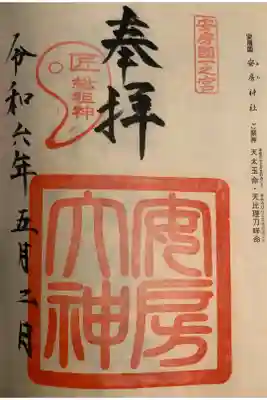 安房國
安房神社
ご祭神 天太玉命・天比理刀咩命
安房國一之宮
奉拝
匠
総祖神
安房
大神
令和六年五月二日